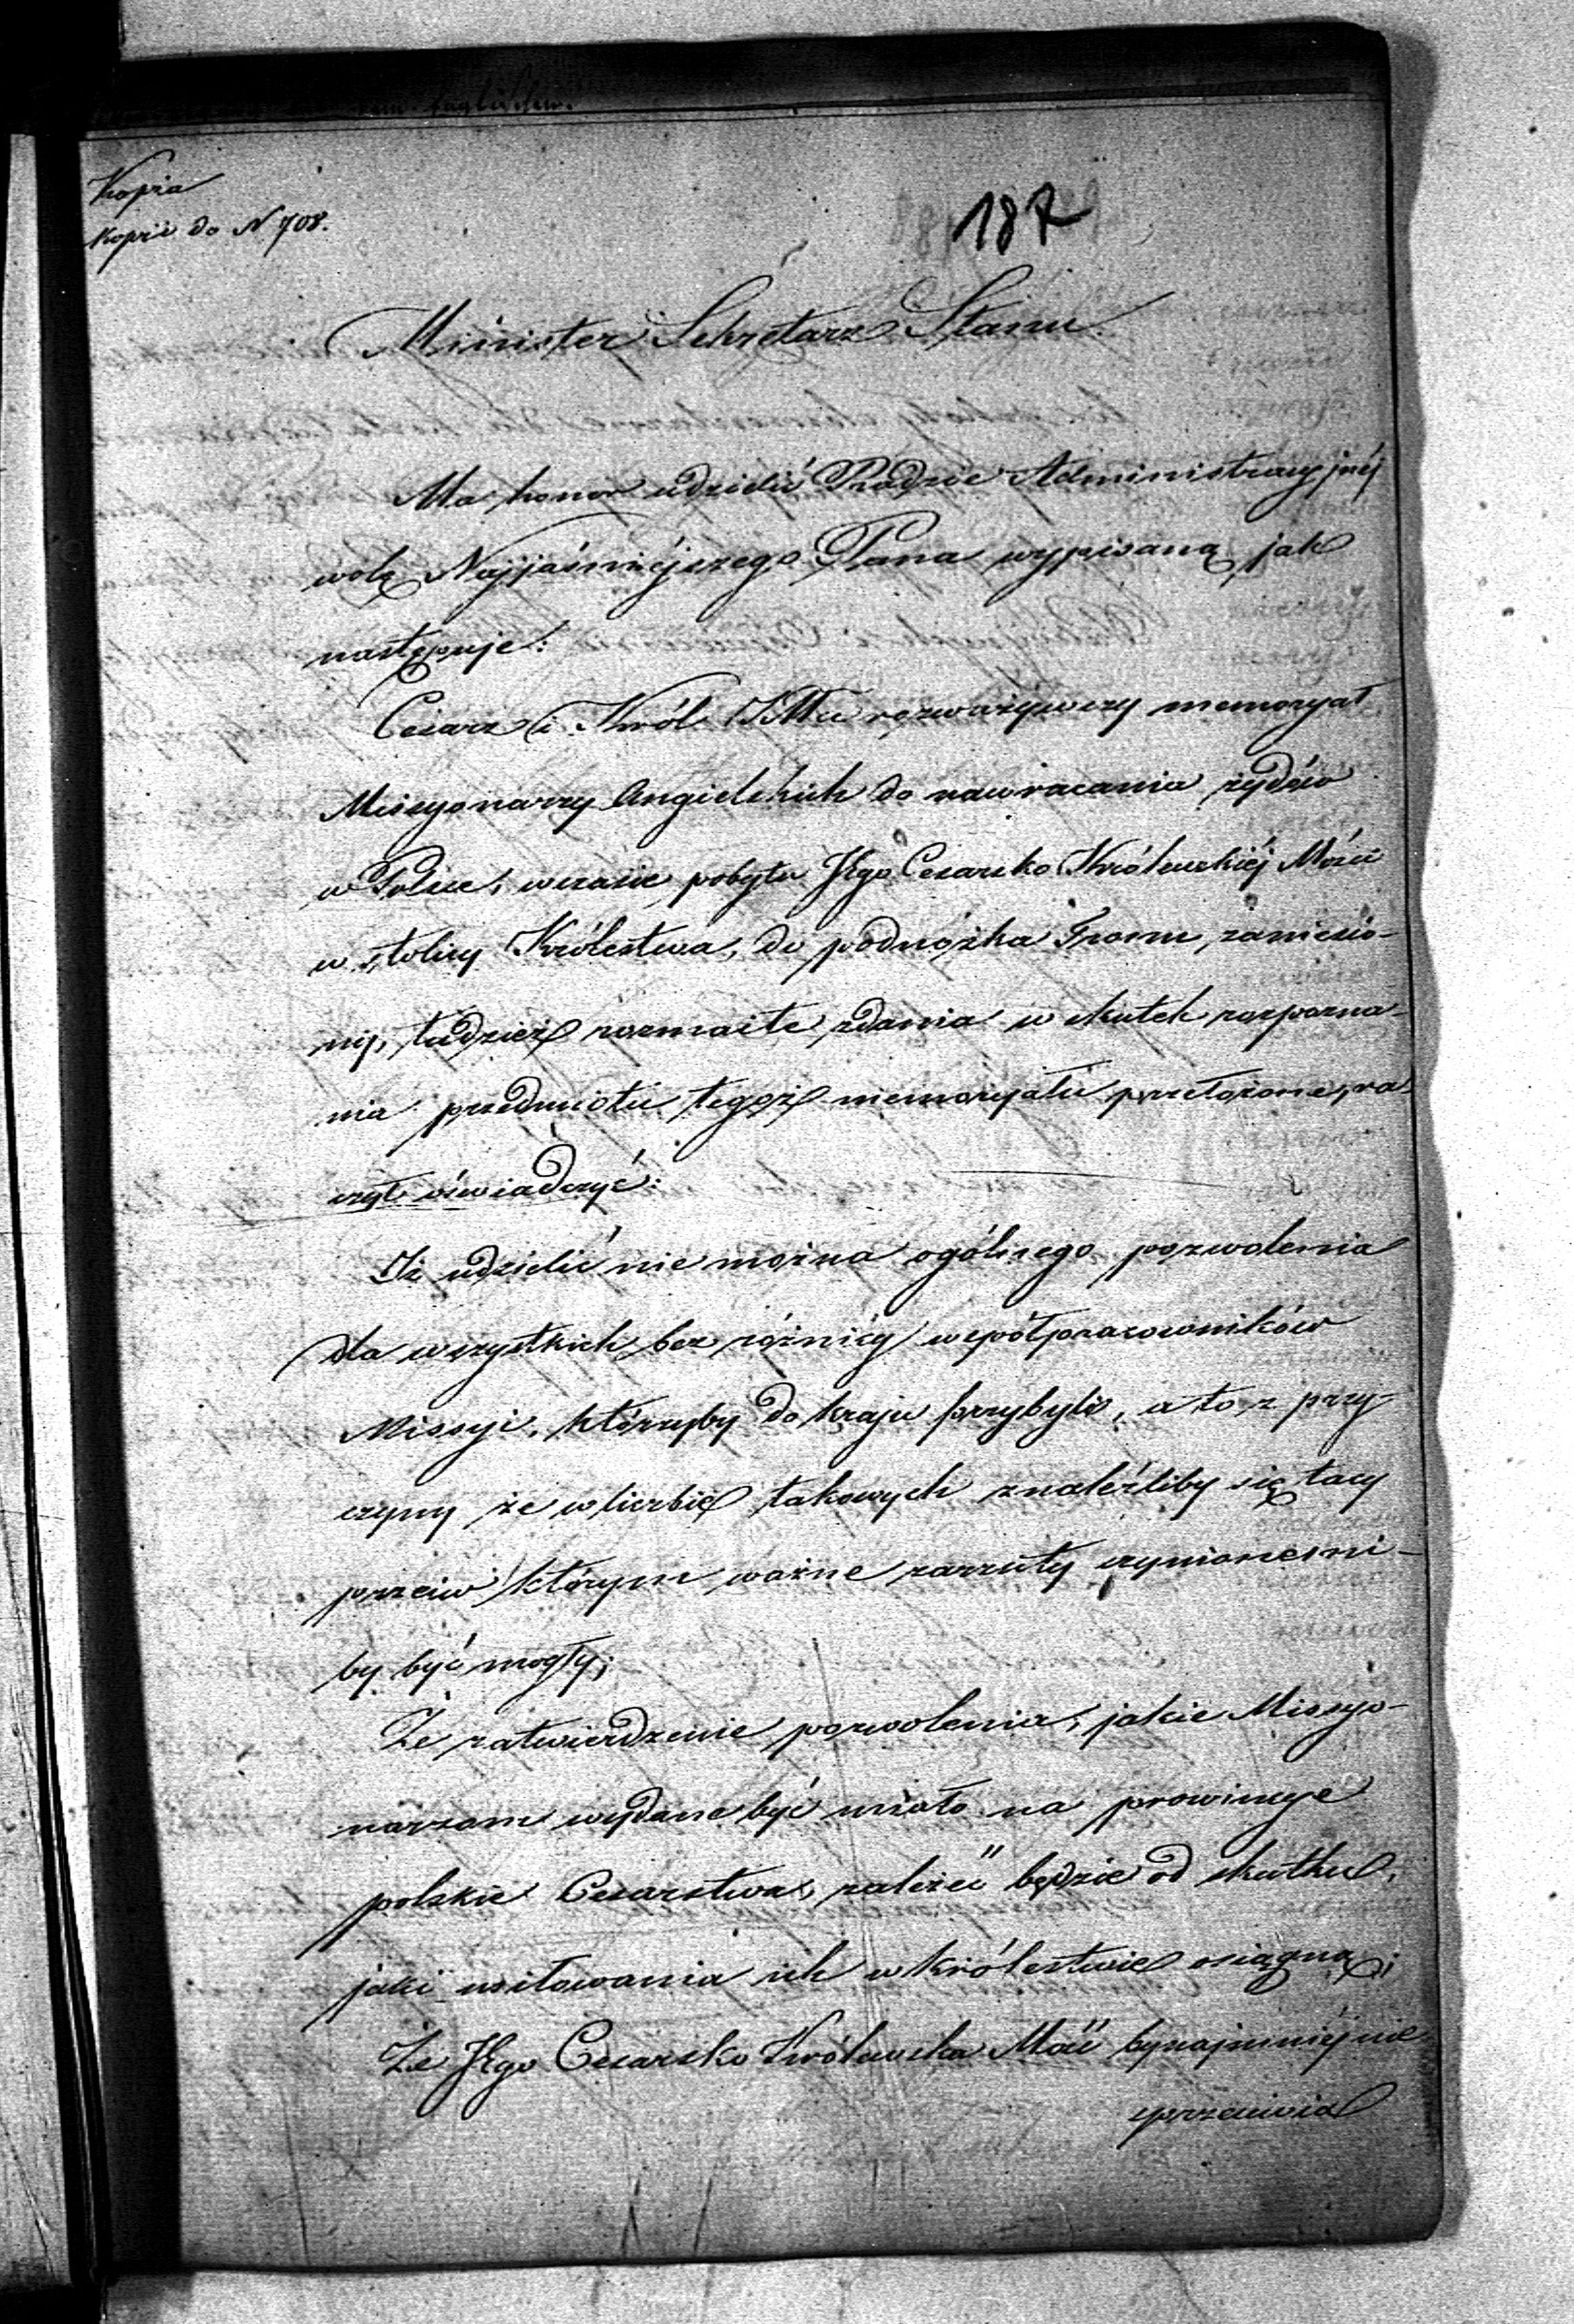 Kopia
kopii do N 708.
187
Minister Sekretarz Stanu.
Ma honor udzielić Radzie Administracyjnéj
wolę Najjaśniéjszego Pana wypisaną jak
następuje:
Cesarz i Król JMć rozważywszy memoryał
Missyonarzy Angielskich do nawracania żydów
w Polsce, w czasie pobytu Jego Cesarsko Królewskiéj Mości
w stolicy Królestwa, do podnóżka Tronu zaniesio-
ny, tudzież rozmaite zdania w skutek rozpozna-
nia przedmiotu tegoż memoryału przełożone, ra-
czył oświadczyć:
Iż udzielić nie można ogólnego pozwolenia
dla wszystkich bez różnicy współpracowników
Missyi, którzyby do kraju przybyli, a to z przy-
czyny że w liczbie takowych znaleźliby się tacy
przeciw którym ważne zarzuty czynionemi-
by być mogły;
Że zatwierdzenie pozwolenia, jakie Missyo-
narzom wydane być miało na prowincye
polskie Cesarstwa, zależeć będzie od skutku,
jaki usiłowania ich w Królestwie osiągną;
Że Jego Cesarsko Królewska Mość bynajmniéj nie
sprzeciwia